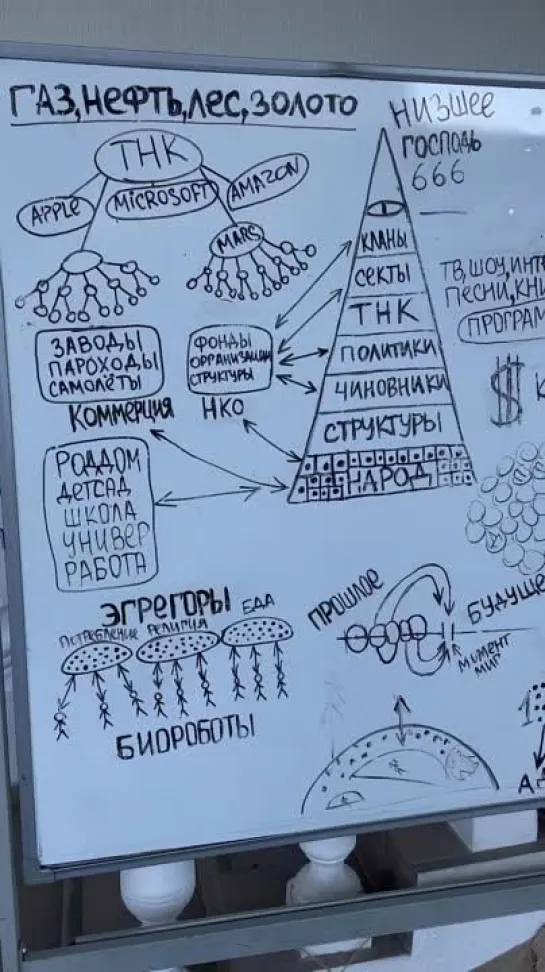 ГАЗ,НЕФТЬ,ЛЕС,ЗОЛОТО
ТНК
APPLE
MICROSOFT
AMAZON
MARS
ЗАВОДЫ
ПАРОХОДЫ
САМОЛЁТЫ
КОММЕРЦИЯ
ФОНДЫ
ОРГАНИЗАЦИИ
СТРУКТУРЫ
НКО
РОДДОМ
ДЕТСАД
ШКОЛА
УНИВЕР
РАБОТА
НИЗШЕЕ
ГОСПОДЬ
666
КЛАНЫ
СЕКТЫ
ТНК
ПОЛИТИКИ
ЧИНОВНИКИ
СТРУКТУРЫ
НАРОД
ТВ,ШОУ,ИНТЕ
ПЕСНИ,КНИ
ПРОГРАМ
$ К
ЭГРЕГОРЫ
ПОТРЕБЛЕНИЕ
РЕЛИГИЯ
ЕДА
БИОРОБОТЫ
ПРОШЛОЕ
БУДУЩЕ
МОМЕНТ
МИГ
1
АД